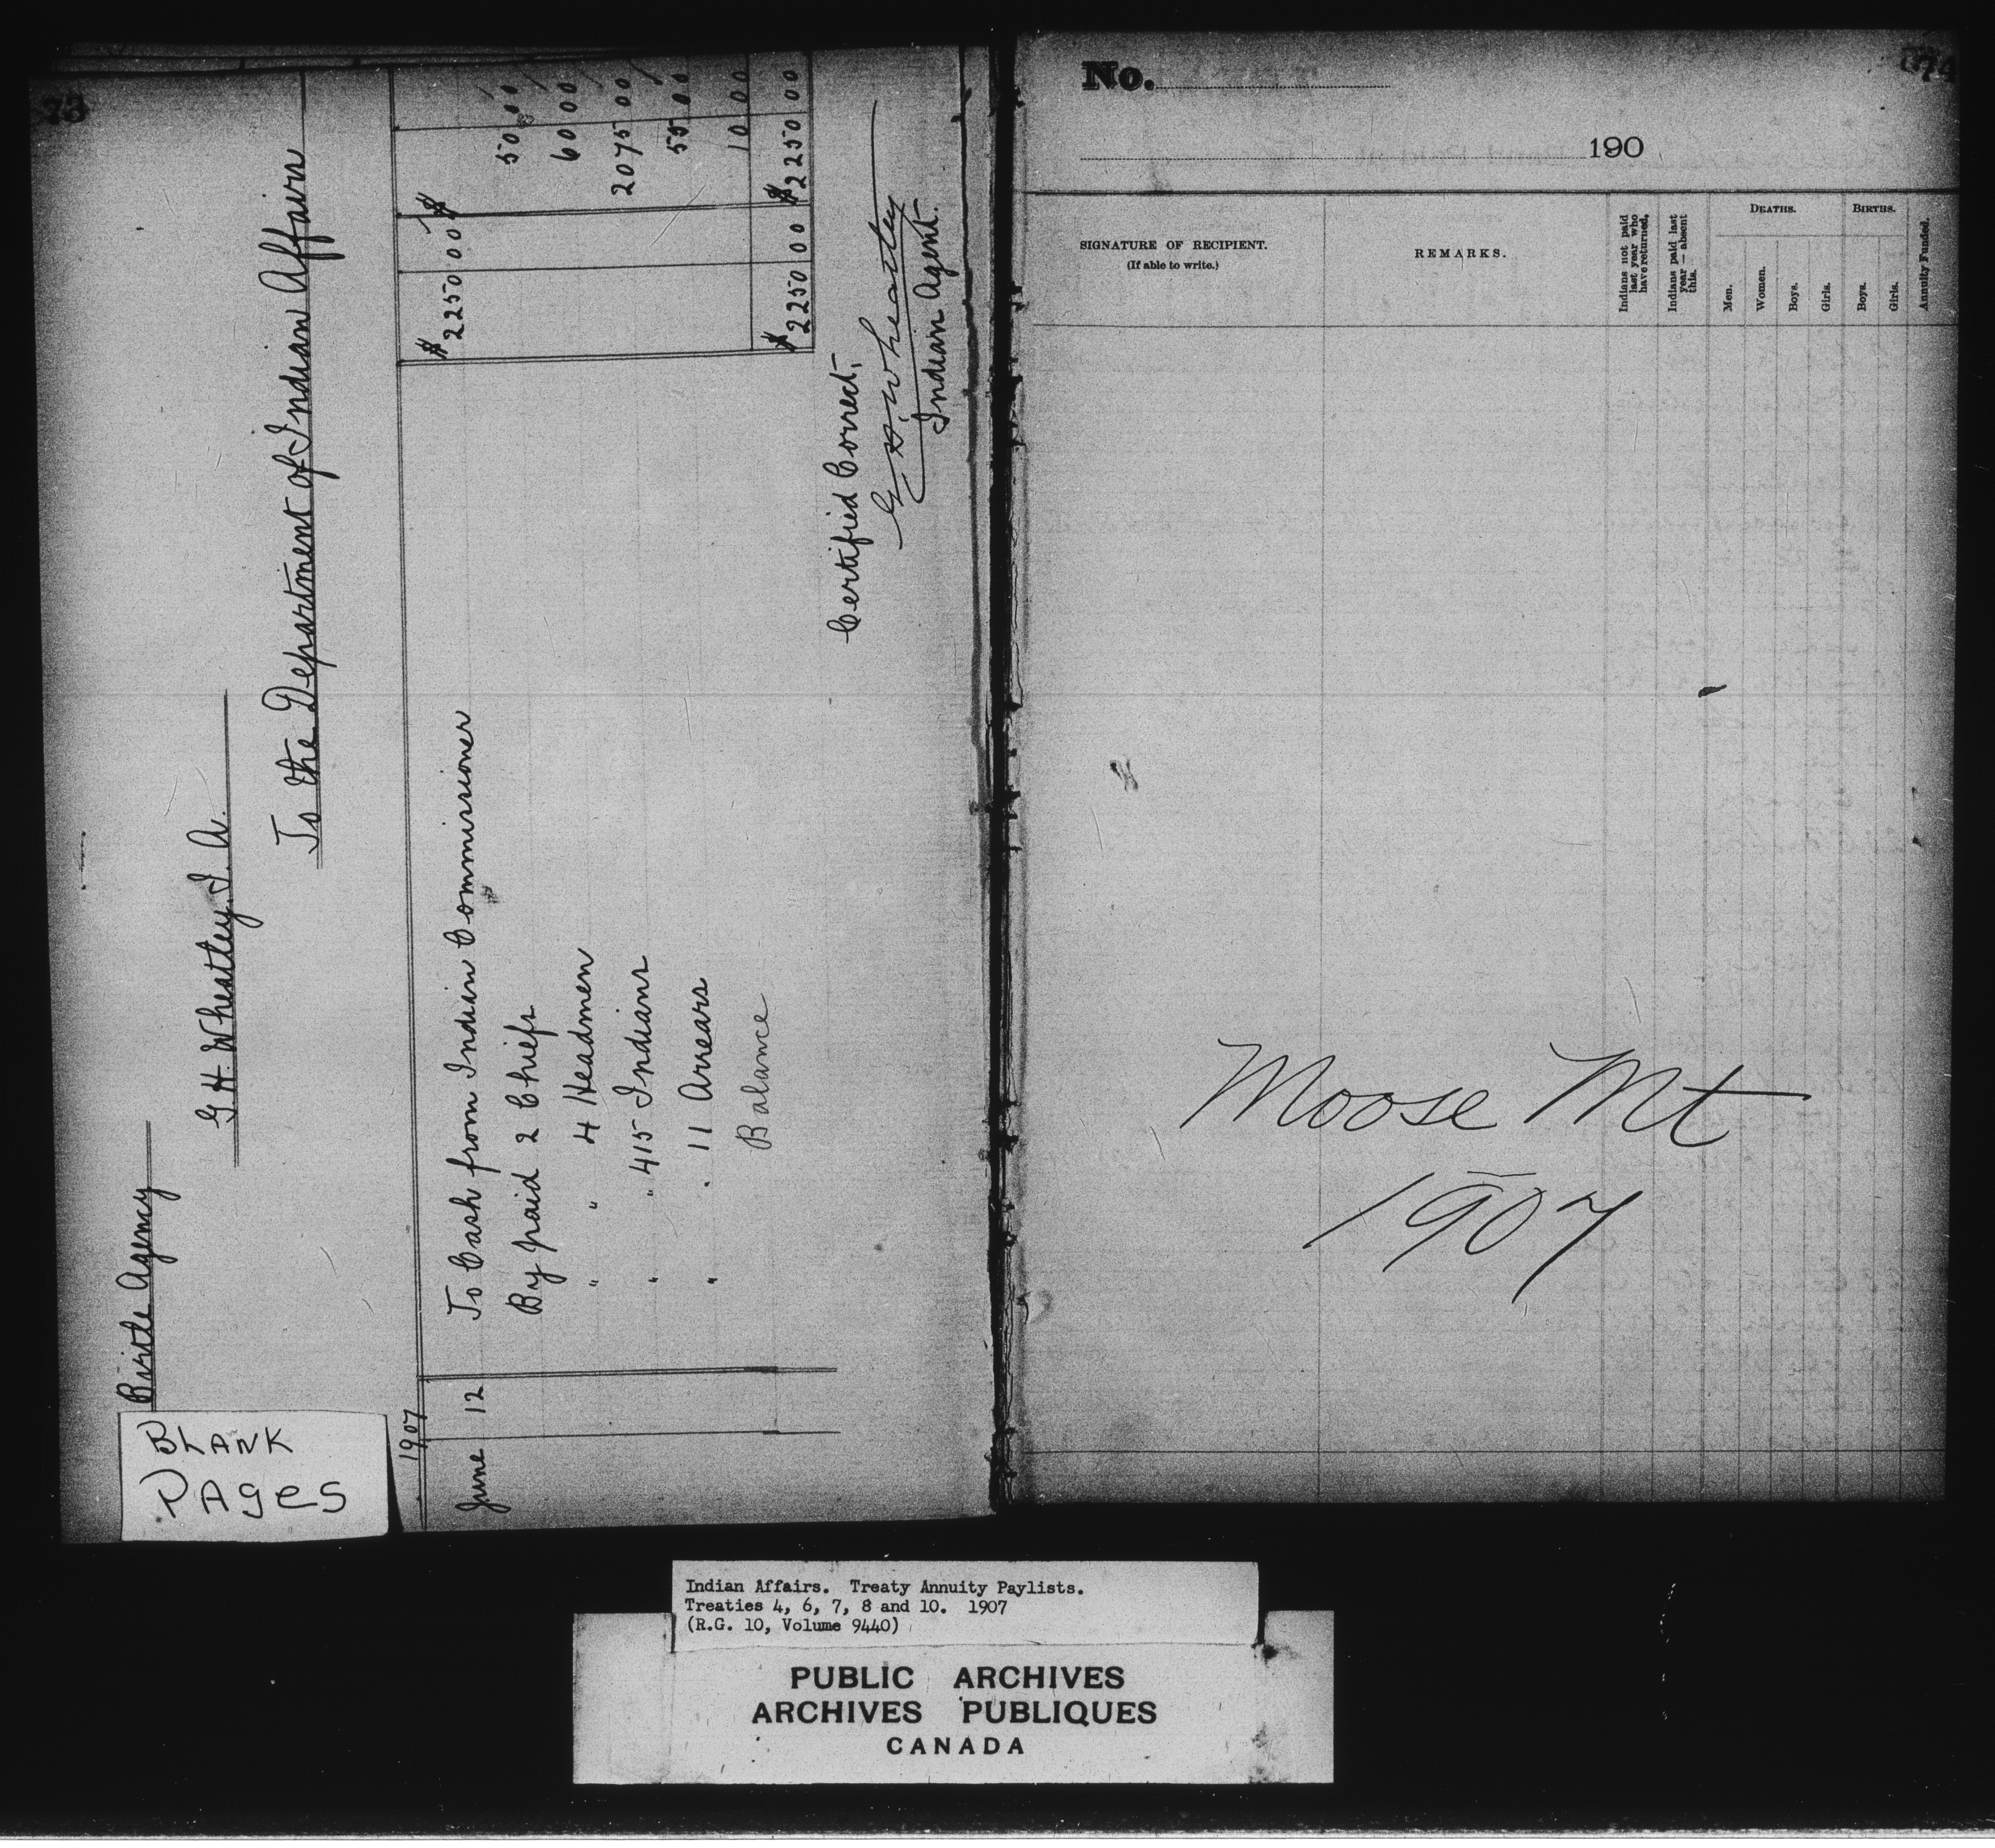 73
Birtle Agency
G. H. Wheatley. I. A.
To the Department of Indian Affairs
1907
June 12 To Cash from Indian Commissioner $ 2250 00 $
By paid 2 Chiefs 50 00
" " 4 Headmen 60 00
" " 415 Indians 2075 00
" " 11 Arrears 55 00
Balance 10 00
$ 2250 00 $ 2250 00
Certified Correct,
G H. Wheatley
Indian Agent.
BLANK
PAges
No.
74
190
SIGNATURE OF RECIPIENT.
(If able to write.)
REMARKS.
Indians not paid last year who have returned.
Indians paid last year — absent this.
DEATHS.
Men.
Women.
Boys.
Girls.
BIRTHS.
Boys.
Girls.
Annuity Funded.
Moose Mt
1907
Indian Affairs. Treaty Annuity Paylists.
Treaties 4, 6, 7, 8 and 10. 1907
(R.G. 10, Volume 9440)
PUBLIC ARCHIVES
ARCHIVES PUBLIQUES
CANADA